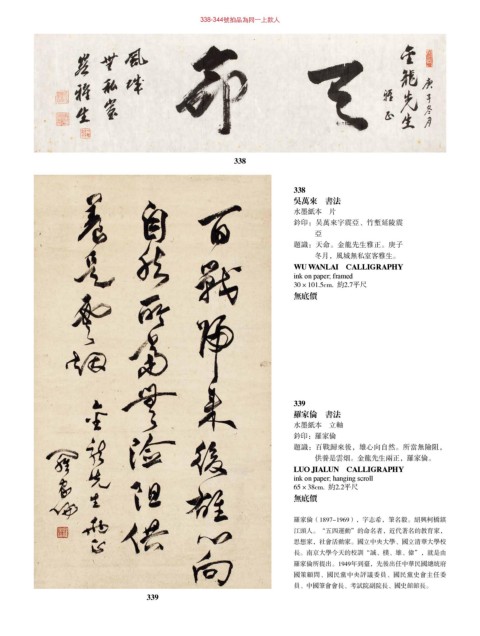 338-344號拍品為同一上款人
庚午冬月
金龍先生
雅正
天
命
風城
無私室
客雅生
338
338
吳萬來　書法
水墨紙本　片
鈐印：吳萬來字震亞、竹塹延陵震
亞
題識：天命。金龍先生雅正。庚子
冬月，風城無私室客雅生。
WU WANLAI　CALLIGRAPHY
ink on paper; framed
30 × 101.5cm. 約2.7平尺
無底價
百戰歸來後雄心向
自然所當無險阻供
養是雲烟
金龍先生兩正
羅家倫
339
339
羅家倫　書法
水墨紙本　立軸
鈐印：羅家倫
題識：百戰歸來後，雄心向自然。所當無險阻，
供養是雲烟。金龍先生兩正，羅家倫。
LUO JIALUN　CALLIGRAPHY
ink on paper; hanging scroll
65 × 38cm. 約2.2平尺
無底價
羅家倫（1897-1969），字志希，筆名毅，紹興柯橋錢
江頭人。“五四運動”的命名者，近代著名的教育家，
思想家，社會活動家。國立中央大學、國立清華大學校
長。南京大學今天的校訓“誠、樸、雄、偉”，就是由
羅家倫所提出。1949年到臺，先後出任中華民國總統府
國策顧問、國民黨中央評議委員、國民黨史會主任委
員、中國筆會會長、考試院副院長、國史館館長。